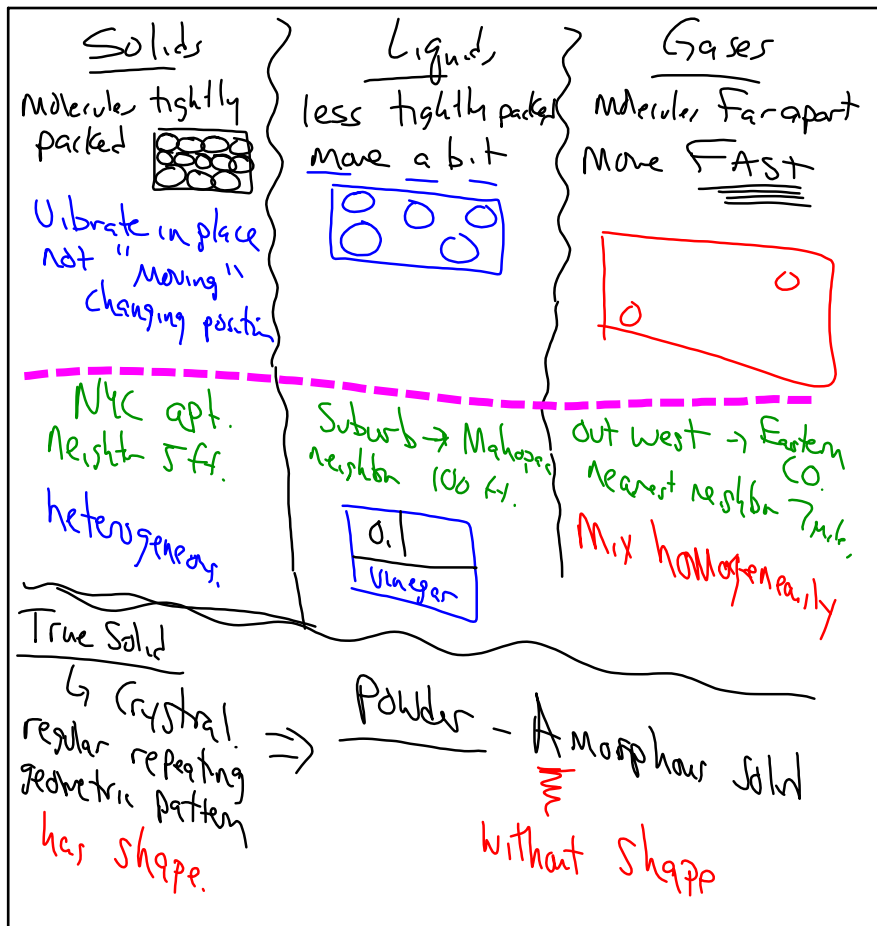 Solids
Molecules tightly
packed
Vibrate in place
not "Moving"
changing position
NYC apt.
neighbor 5 ft.
heterogeneous.
Liquids
less tightly packed
move a bit
Suburb → Mahopac
neighbor 100 ft.
Oil
Vinegar
Gases
Molecules Far apart
Move FAST
Out west → Eastern
CO.
nearest neighbor 7 mile.
Mix homogeneously
True Solid
↳ Crystal.
regular repeating
geometric pattern
has shape.
⇒ Powder - Amorphous solid
without shape